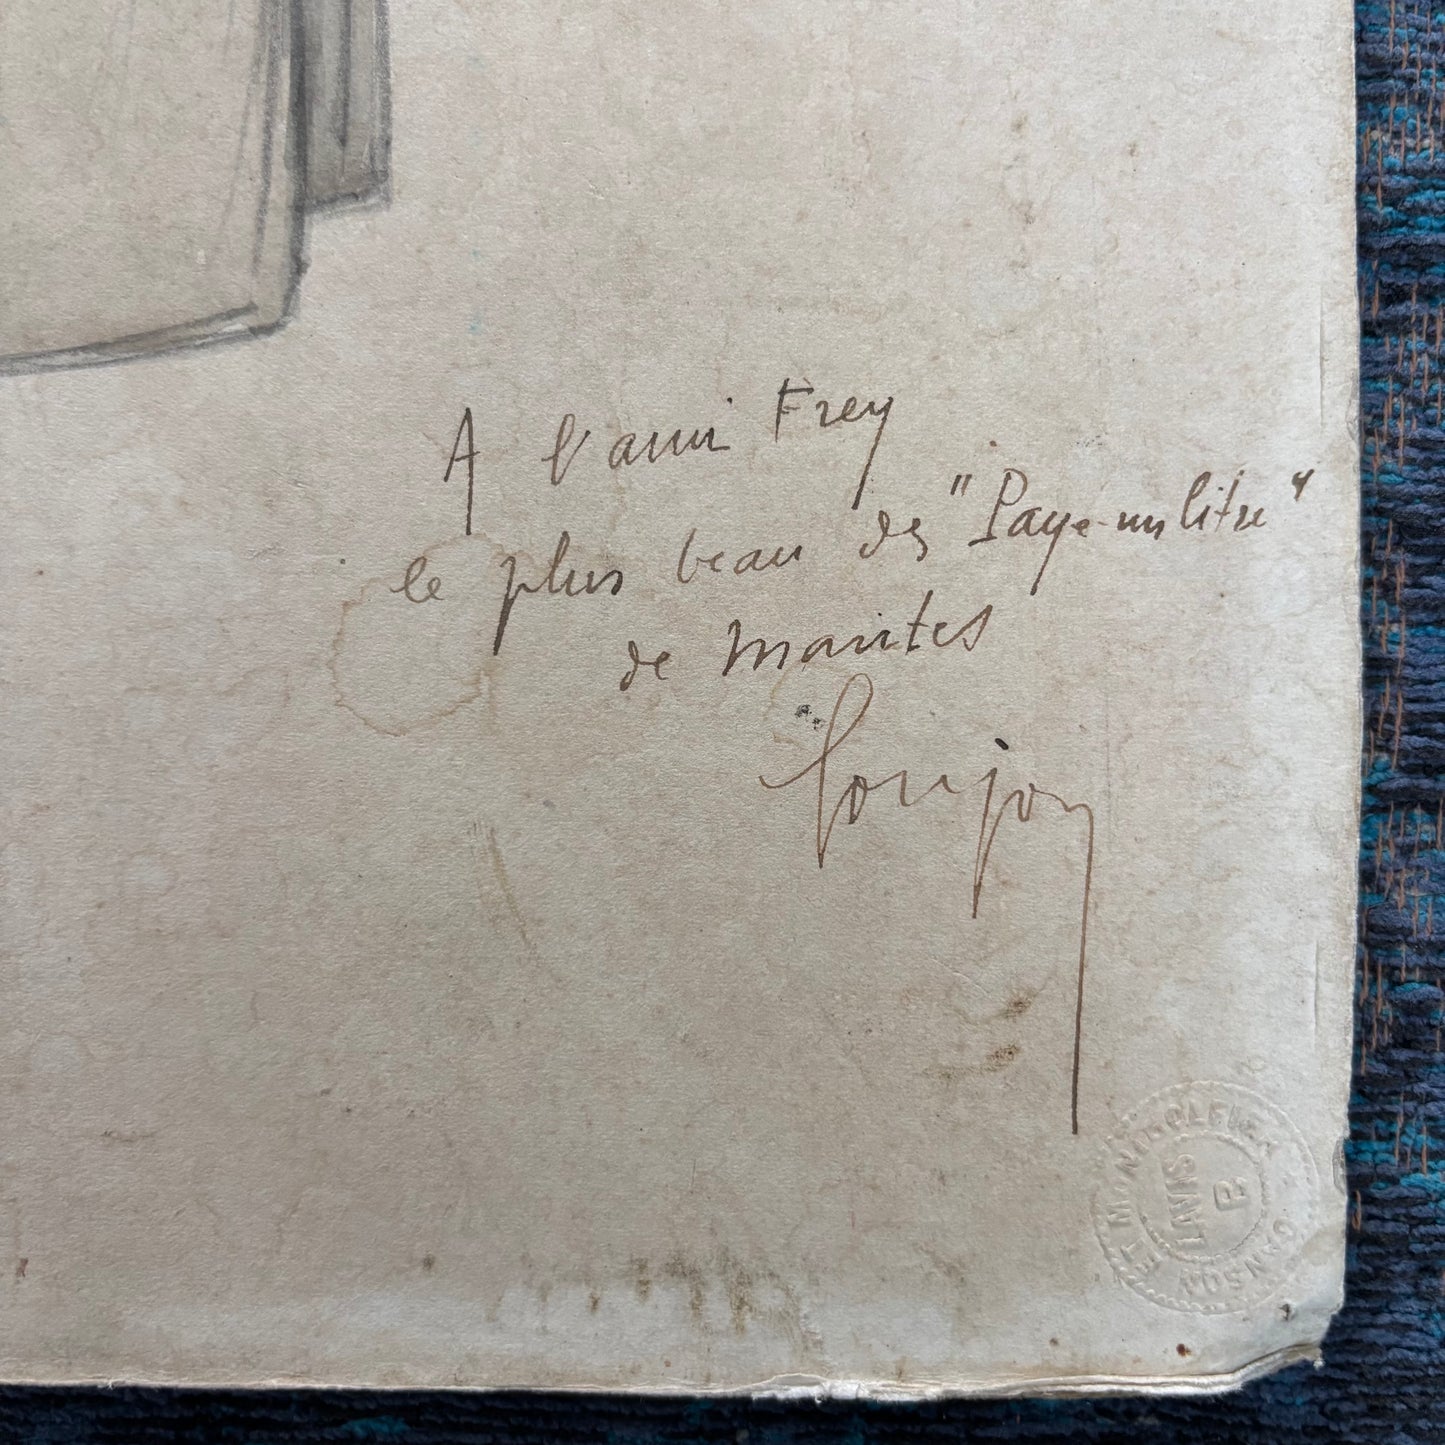 A l'ami Frey
le plus beau des "Paye-un litre"
de Mantes
CANSON ET MONTGOLFIER
LAVIS
B